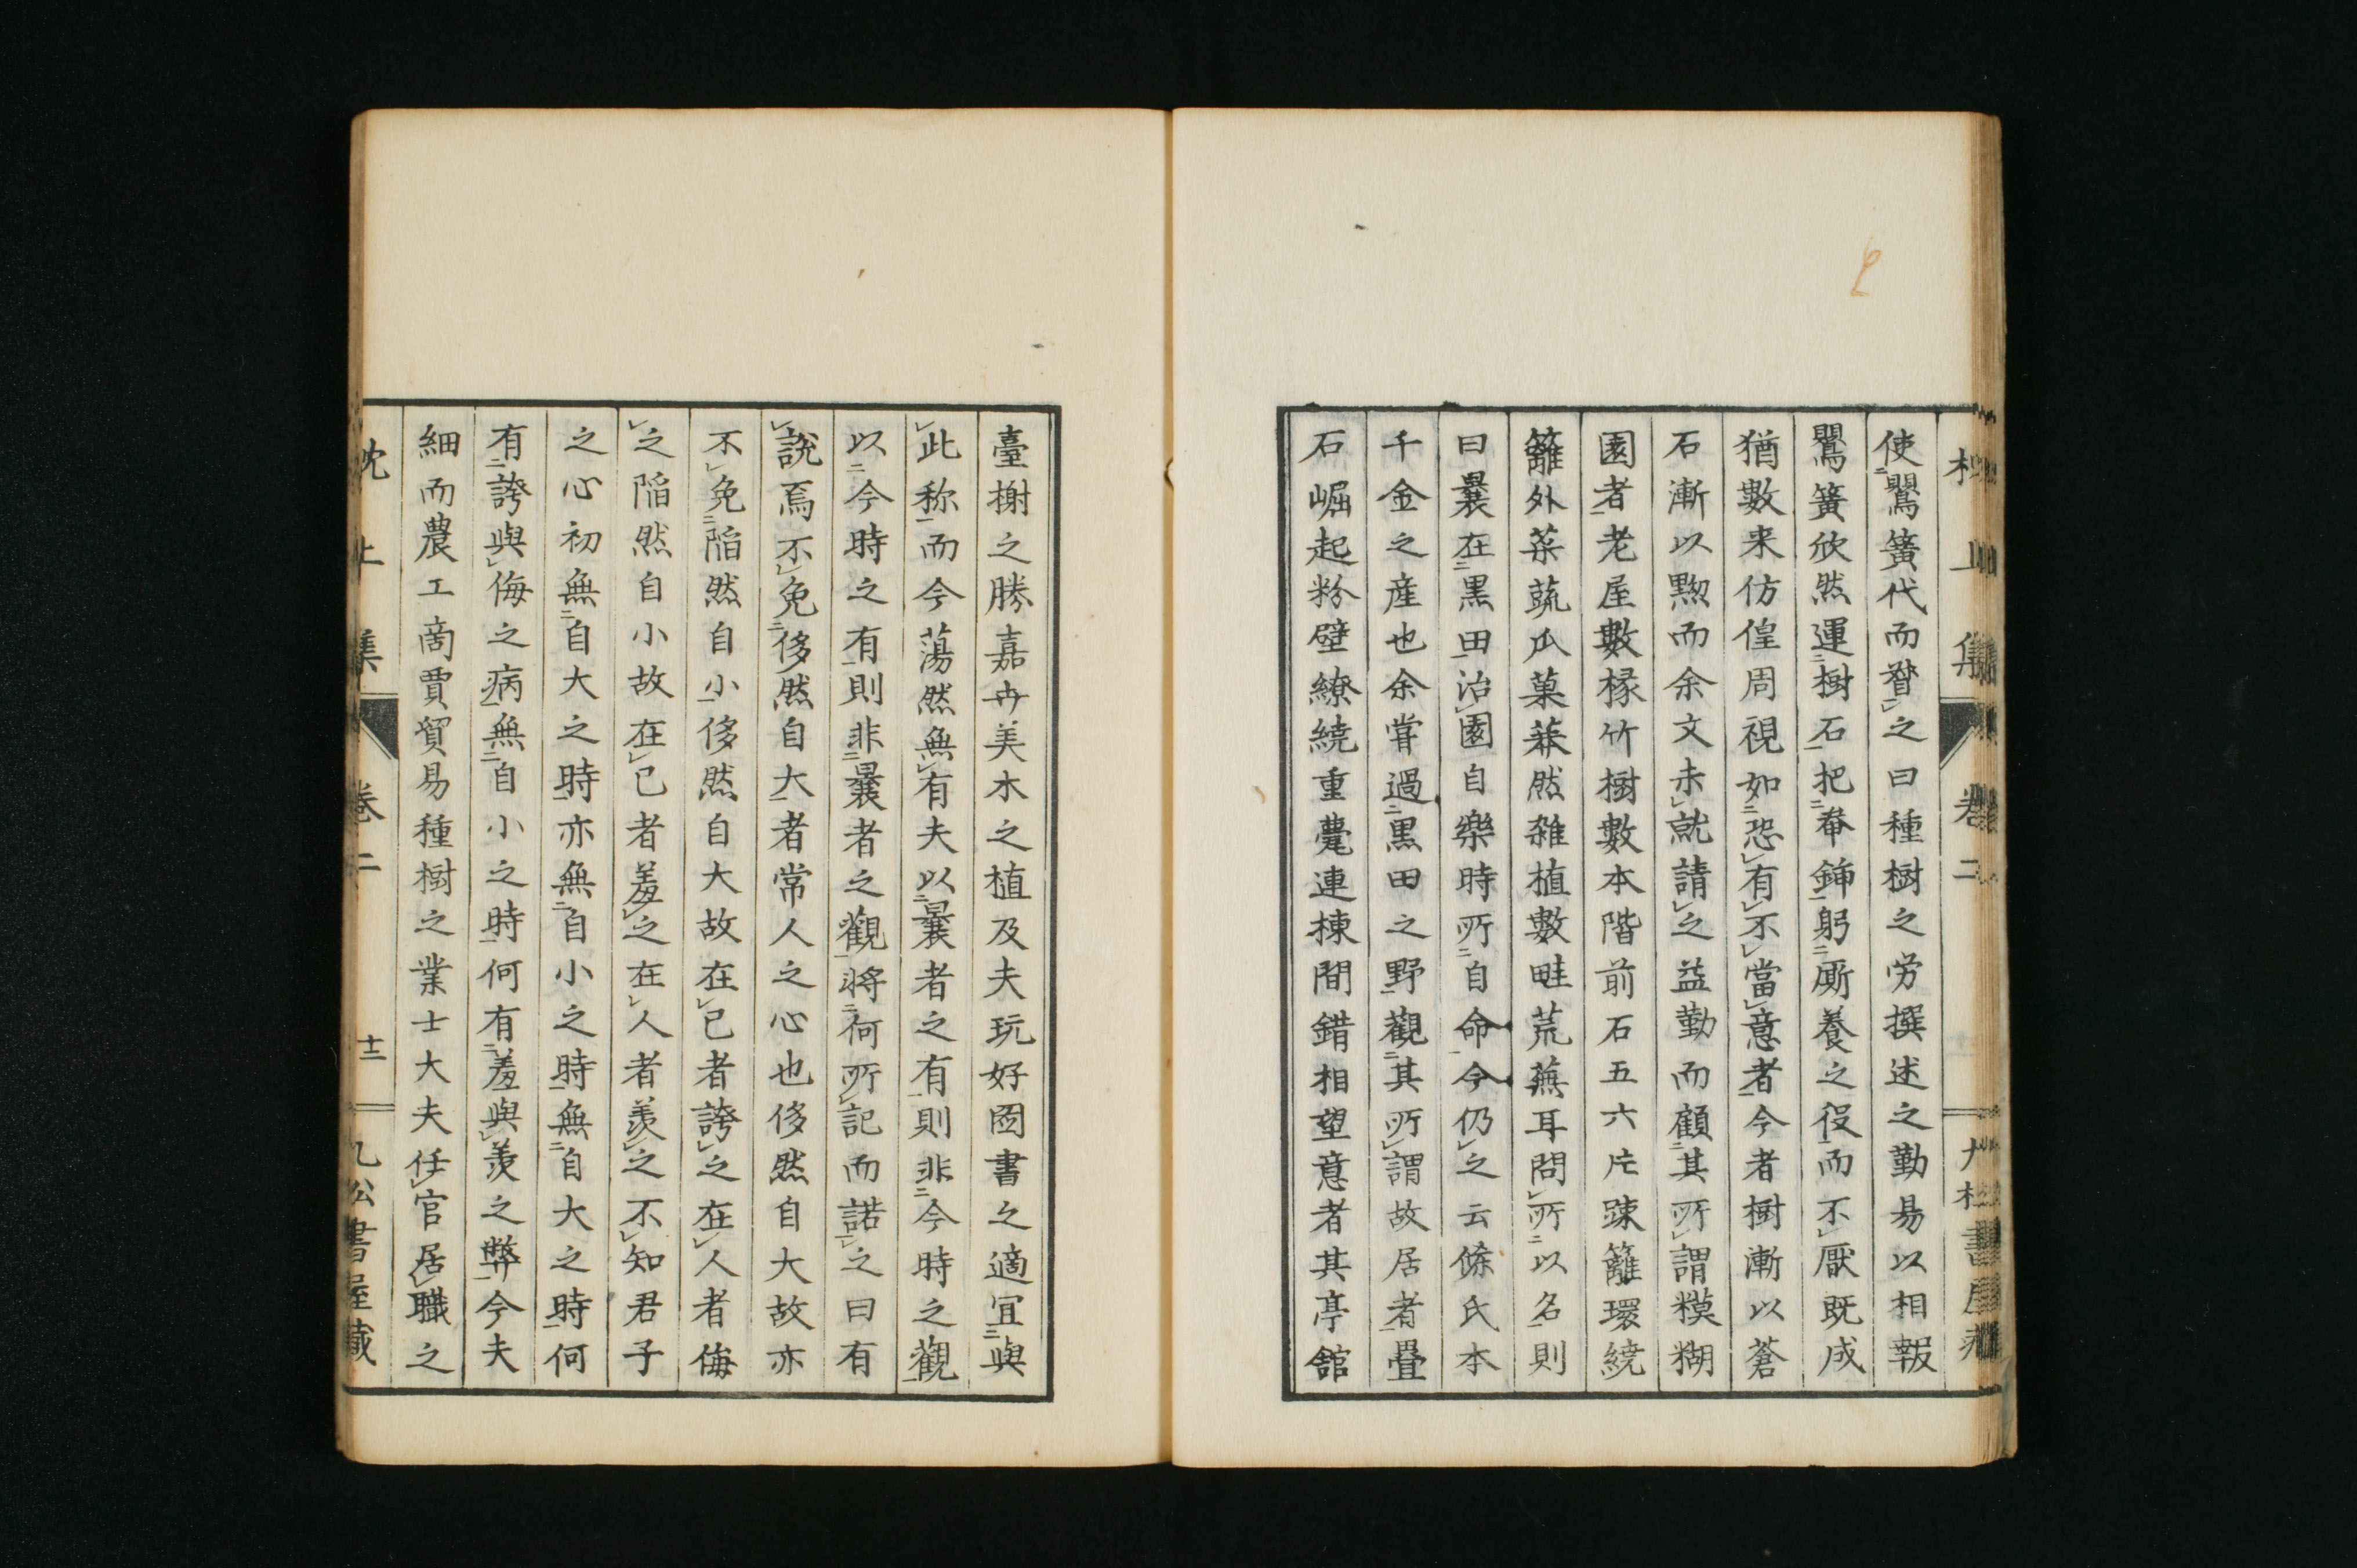 使鸎簧代而贅之曰種樹之労撰述之勤易以相報
鸎簧欣然運樹石把畚鍤躬厮養之役而不厭既成
猶數来仿偟周視如恐有不當意者今者樹漸以蒼
石漸以黝而余文未就請之益勤而顧其所謂糢糊
園者老屋數椽竹樹數本階前石五六片踈籬環繞
籬外菜蔬瓜菓莽然雑植數畦荒蕪耳問所以名則
曰曩在黒田治園自樂時所自命今仍之云條氏本
千金之産也余甞過黒田之野觀其所謂故居者疊
石崛起粉壁繚繞重甍連棟間錯相望意者其亭舘
臺榭之勝嘉卉美木之植及夫玩好圖書之適宜與
此称而今蕩然無有夫以曩者之有則非今時之觀
以今時之有則非曩者之觀將何所記而諾之曰有
説焉不免侈然自大者常人之心也侈然自大故亦
不免陥然自小侈然自大故在己者誇之在人者侮
之陥然自小故在己者羞之在人者羨之不知君子
之心初無自大之時亦無自小之時無自大之時何
有誇與侮之病無自小之時何有羞與羨之弊今夫
細而農工商賈貿易種樹之業士大夫任官居職之
枕上集
卷二
十三
九松書屋藏